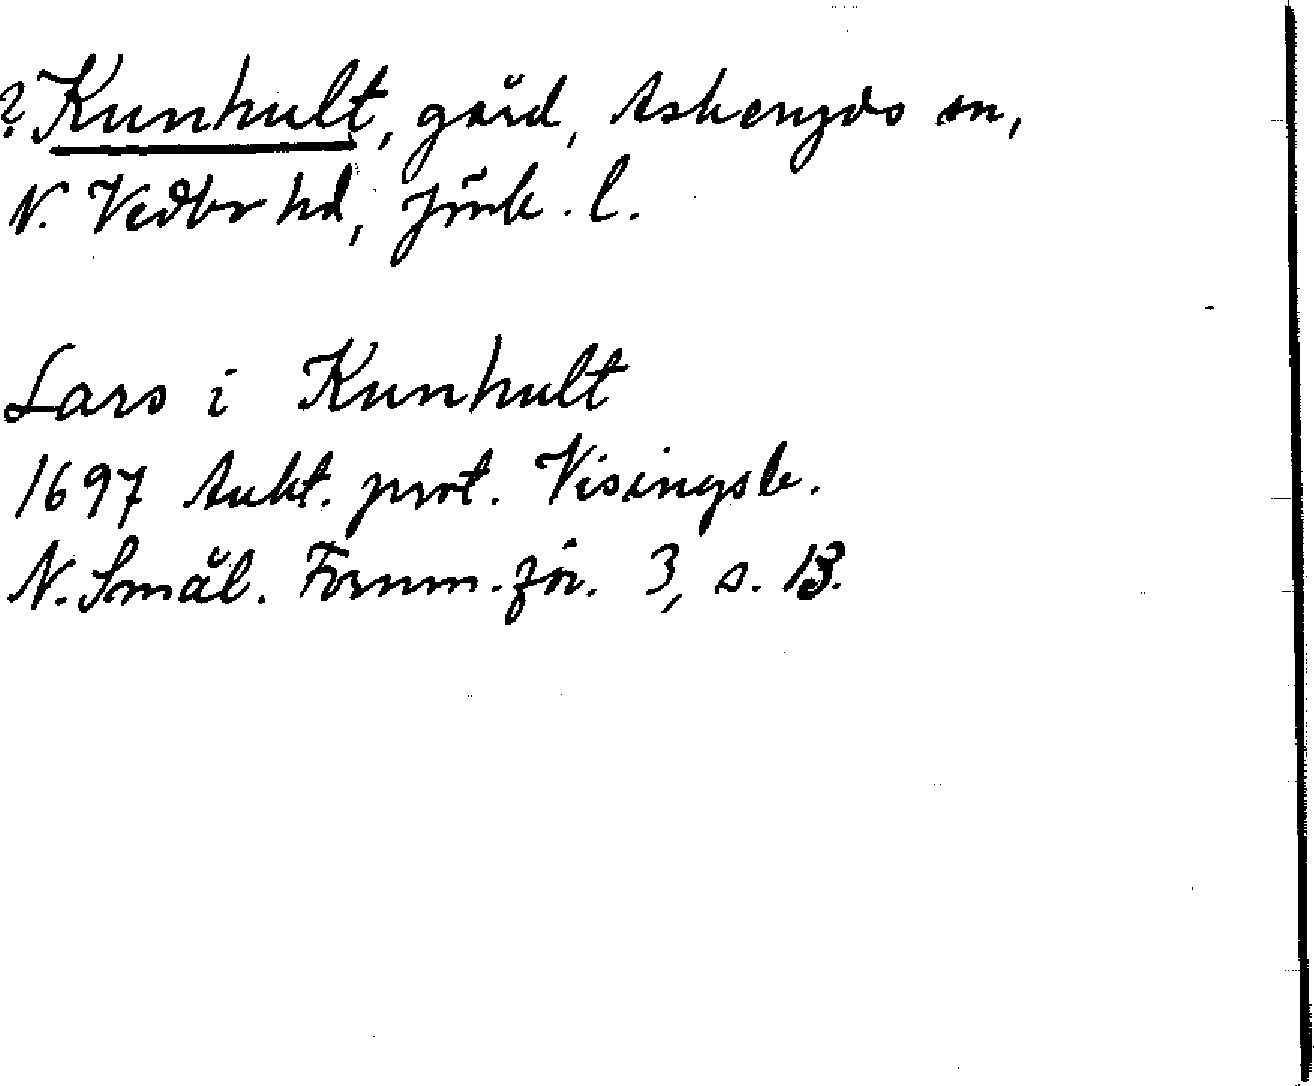 ? Kunhult, gård, Askeryds sn,
N. Vedbo hd, Jönk. l.
Lars i Kunhult
1697 Aukt. prot. Visingsb.
N. Smål. Fornm.för. 3, s. 13.